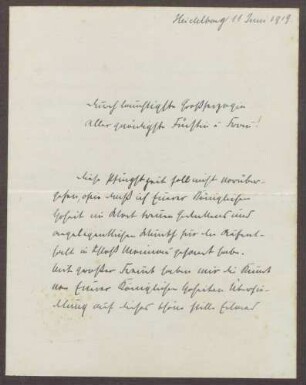 Heidelberg 11 Juni 1919
Durchlauchtigste Großherzogin
Allergnädigste Fürstin u Frau!
Diese Pfingstzeit soll nicht vorüber-
gehen, ohne daß ich Eurer Königlichen
Hoheit ein Wort treuen Gedenkens und
angelegentlichen Wunsch für den Aufent-
halt in Schloß Mainau gesandt habe.
Mit großer Freude haben wir die Kunde
von Eurer Königlichen Hoheiten Übersie-
delung auf dieses schöne stille Eiland